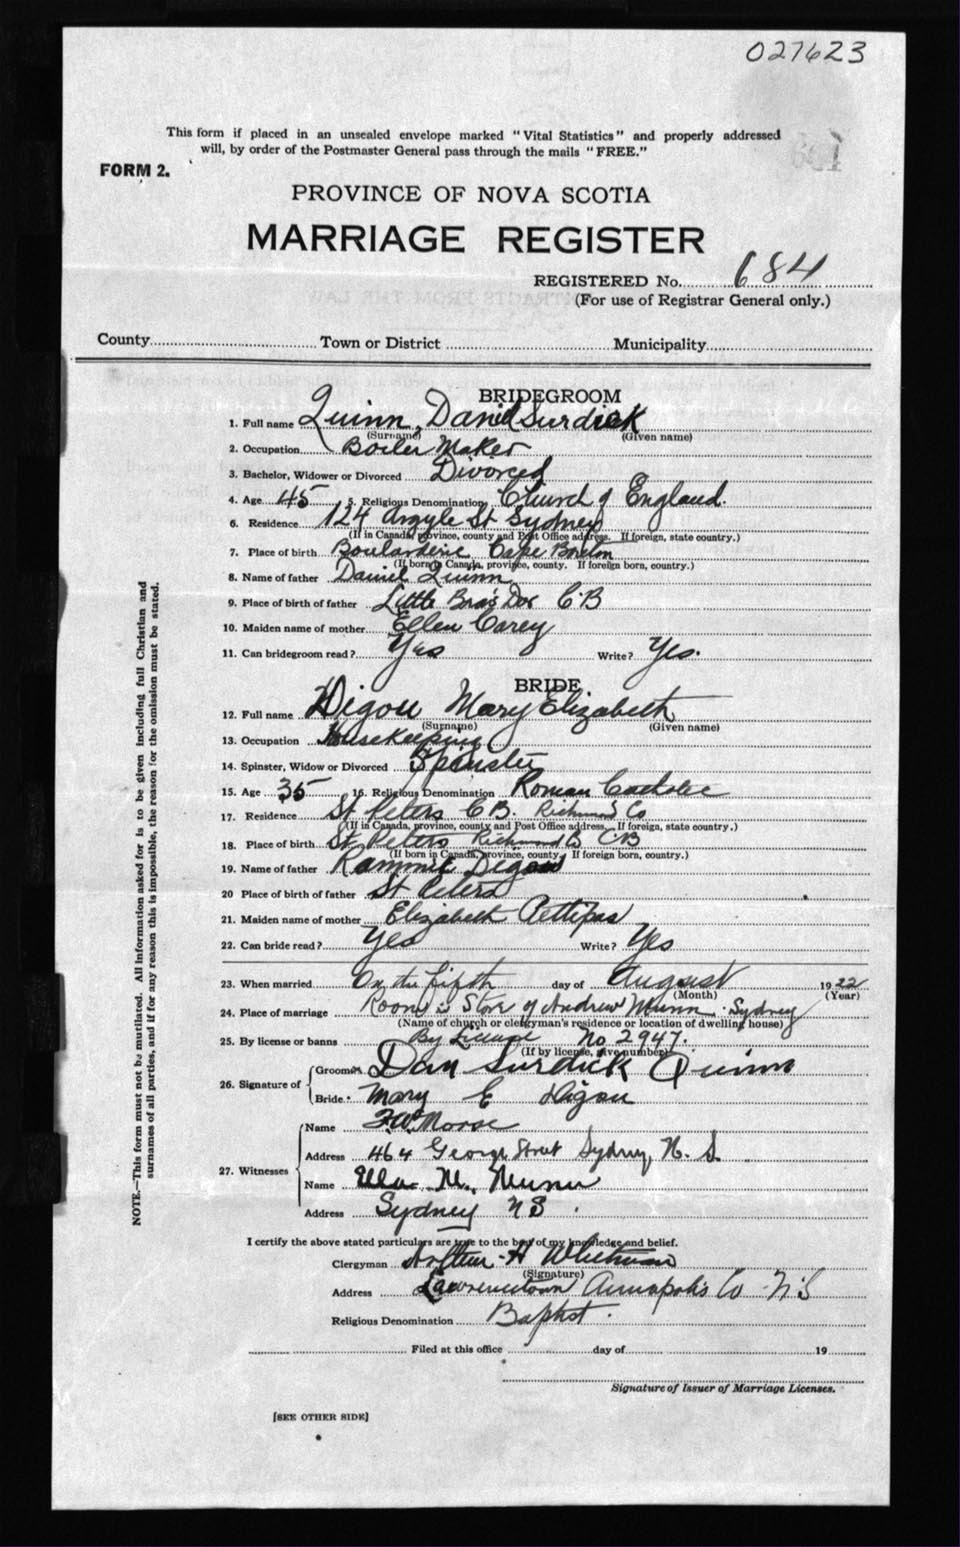 027623
This form if placed in an unsealed envelope marked "Vital Statistics" and properly addressed
will, by order of the Postmaster General pass through the mails "FREE."
FORM 2.
PROVINCE OF NOVA SCOTIA
MARRIAGE REGISTER
REGISTERED No. 684
(For use of Registrar General only.)
County Town or District Municipality
BRIDEGROOM
1. Full name Quinn, Daniel Surdick
(Surname) (Given name)
2. Occupation Boiler Maker
3. Bachelor, Widower or Divorced Divorced
4. Age 45 5. Religious Denomination Church of England.
6. Residence 124 Argyle St Sydney
(If in Canada, province, county and Post Office address. If foreign, state country.)
7. Place of birth Boularderie Cape Breton
(If born in Canada, province, county. If foreign born, country.)
8. Name of father Daniel Quinn
9. Place of birth of father Little Bras Dor C.B
10. Maiden name of mother Ellen Carey
11. Can bridegroom read? Yes Write? Yes.
BRIDE
12. Full name Digou Mary Elizabeth
(Surname) (Given name)
13. Occupation Housekeeping
14. Spinster, Widow or Divorced Spinster
15. Age 35 16. Religious Denomination Roman Catholic
17. Residence St Peters C.B. Richmond Co
(If in Canada, province, county and Post Office address. If foreign, state country.)
18. Place of birth St Peters Richmond Co C.B
(If born in Canada, province, county. If foreign born, country.)
19. Name of father Digou
20 Place of birth of father St Peters
21. Maiden name of mother Elizabeth Pettipas
22. Can bride read? Yes Write? Yes
23. When married On the fifth day of August 1922
(Month) (Year)
24. Place of marriage Store of Andrew Munn. Sydney
(Name of church or clergyman's residence or location of dwelling house)
25. By license or banns By License No 2947.
(If by license, give number)
26. Signature of
Groom Dan Surdick Quinn
Bride Mary E Digou
27. Witnesses
Name F.W. Morse
Address 464 George Street Sydney, N. S.
Name Ella M. Munn
Address Sydney N S.
I certify the above stated particulars are true to the best of my knowledge and belief.
Clergyman Arthur H Whitman
(Signature)
Address Lawrencetown Annapolis Co N.S
Religious Denomination Baptist.
Filed at this office day of 19
Signature of Issuer of Marriage Licenses.
[SEE OTHER SIDE]
NOTE.—This form must not be mutilated. All information asked for is to be given including full Christian and
surnames of all parties, and if for any reason this is impossible, the reason for the omission must be stated.